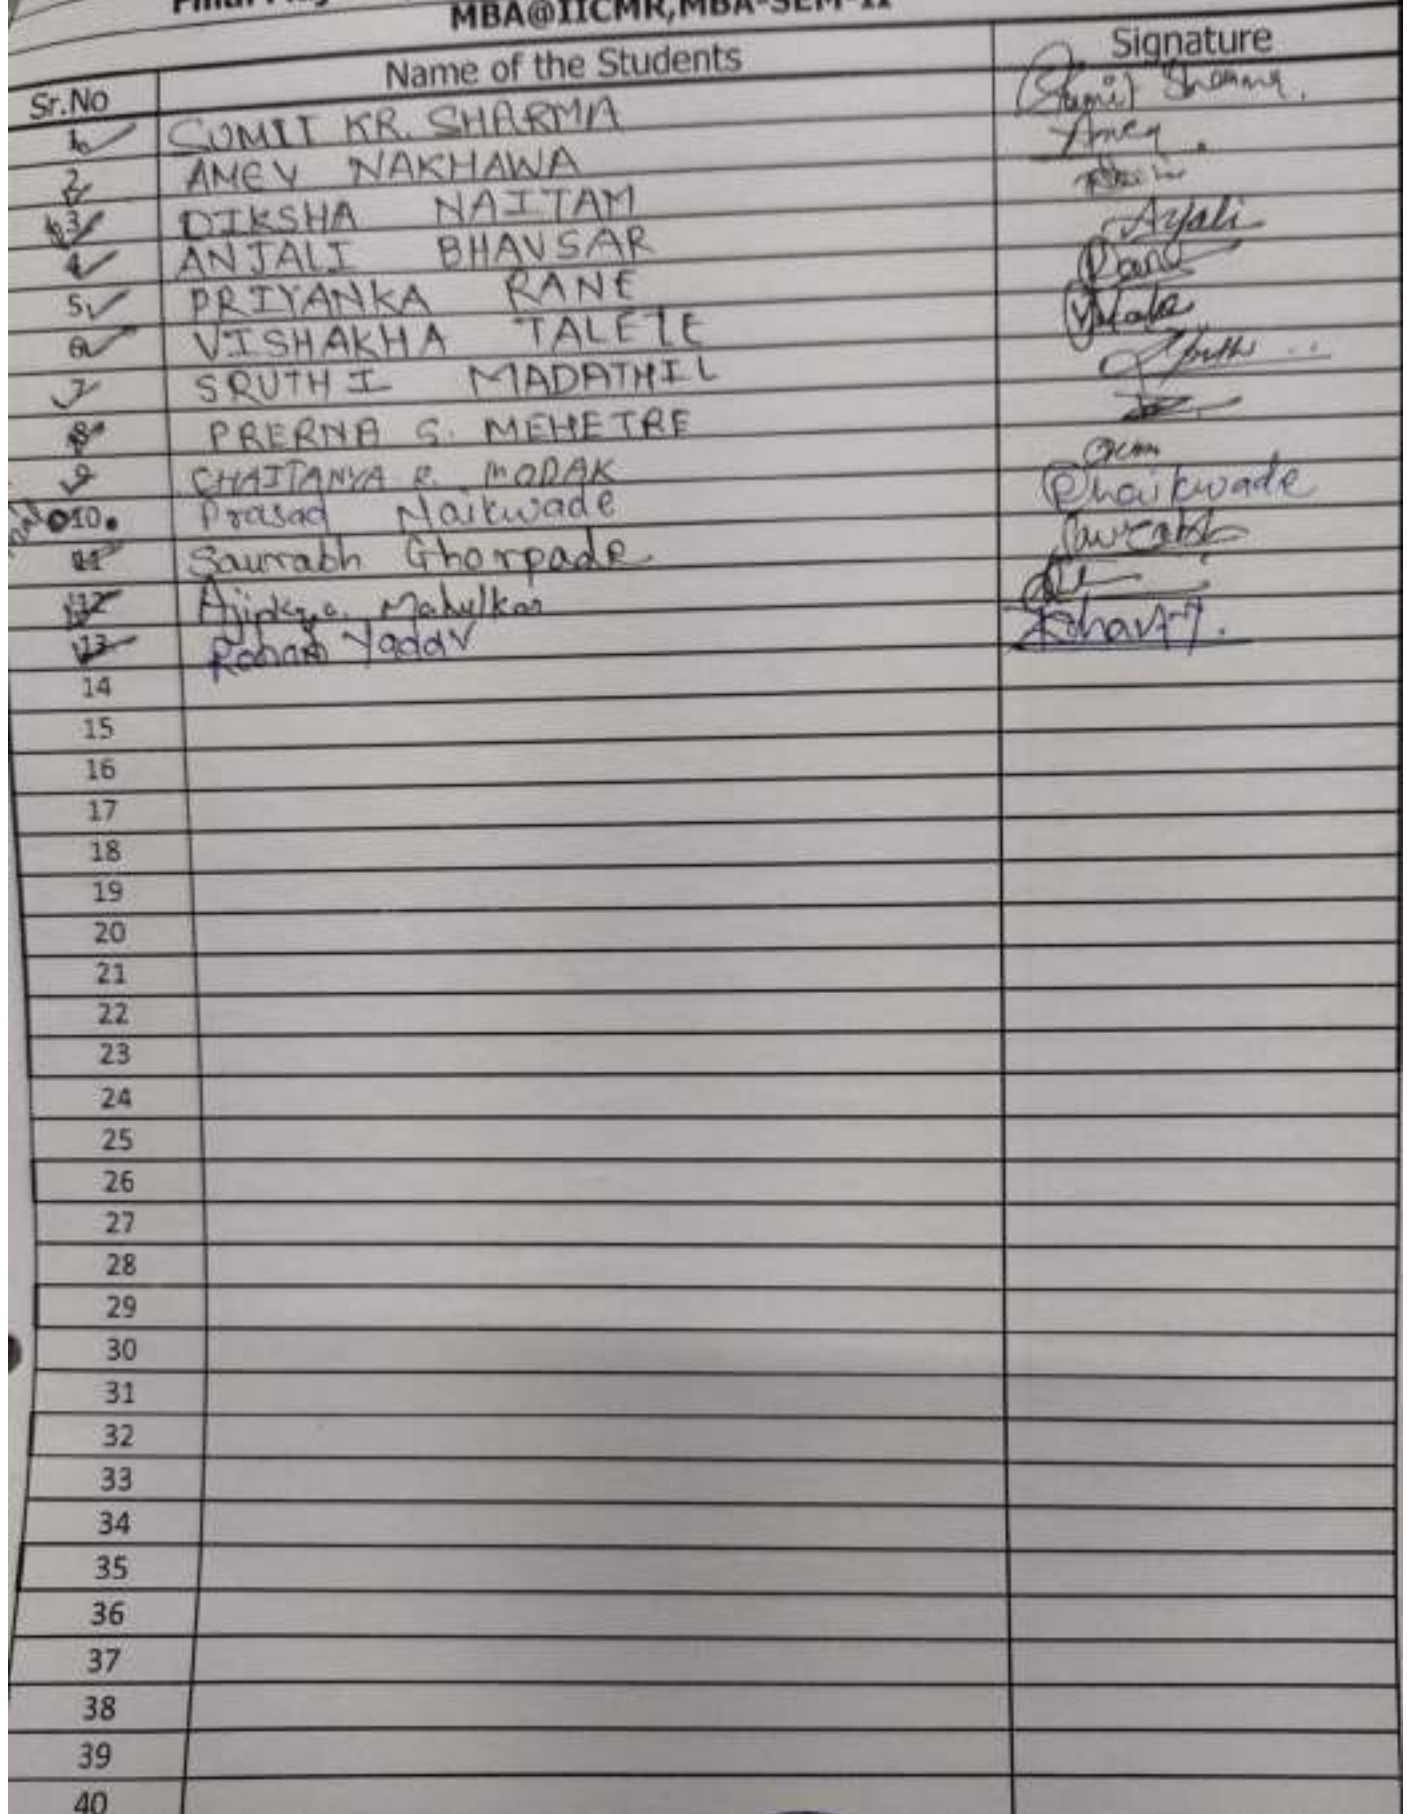 MBA@IICMR,MBA-SEM-II
Sr.No Name of the Students Signature
1 SUMIT KR. SHARMA Sumit Sharma.
2 AMEY NAKHAWA Amey
3 DIKSHA NAITAM
4 ANJALI BHAVSAR Anjali
5 PRIYANKA RANE Rane
6 VISHAKHA TALELE
7 SRUTHI MADATHIL
8 PRERNA S. MEHETRE
9 CHAITANYA R. MODAK
10. Prasad Naikwade Pnaikwade
11 Saurabh Ghorpade Saurabh
12 Ajinkya Mahulkar
13 Rohan Yadav
14
15
16
17
18
19
20
21
22
23
24
25
26
27
28
29
30
31
32
33
34
35
36
37
38
39
40